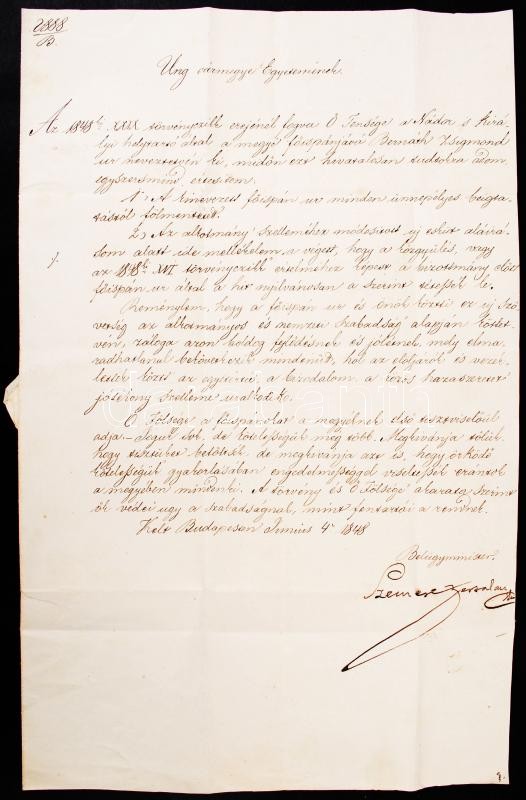 2888
B.
Ung vármegye Egyetemének.
Az 1848ki XXIX törvényczikk erejénél fogva Ő Fensége a Nádor s kirá-
lyi helytartó által a megye főispánjává Bernáth Zsigmond
ur neveztetvén ki, midőn ezt hivatalosan tudtokra adom,
egyszersmind értesítem.
1ő A kinevezett főispán ur minden ünnepélyes beigta-
tástól fölmentetik.
2) Az alkotmány szelleméhez módosított uj esküt aláirá-
som alatt ide mellékelem a végett, hogy a közgyülés, vagy
az 1848ki XVI törvényczikk értelméhez képest a bizottmány előtt
főispán ur által a hit nyilvánosan a szerint tétessék le.
Reménylem, hogy a főispán ur és önök közti ez uj szö-
vetség az alkotmányos és nemzeti szabadság alapján köttet-
vén, záloga azon boldog fejlődésnek és jólétnek, mely elma-
radhatlanul bekövetkezik mindenütt, hol az elöljáró és vezér-
lettek közt az egyetértés a bizodalom, a közös hazaszeretet
jótékony szelleme uralkodik.
Ő Fölsége a főispánokat a megyéknek első tisztviselőiül
adja. Joguk sok, de kötelességük még több. Megkivánja tőlük
hogy tisztüket betöltsék, de megkivánja azt is, hogy őrködő
kötelességük gyakorlásában engedelmességgel viseltessék irántok
a megyében mindenki. A törvény és Ő Fölsége akarata szerint
ők védei ugy a szabadságnak, mint fentartói a rendnek.
Kelt Budapesten Junius 4n 1848
Belügyminiszter.
Szemere Bertalan